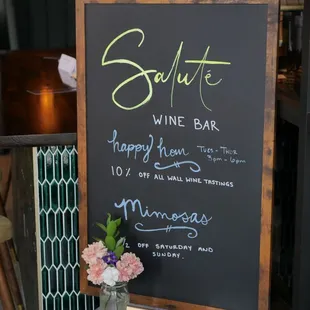 Saluté
WINE BAR
happy hour TUES - THUR
3pm - 6pm
10% OFF ALL WALL WINE TASTINGS
Mimosas
OFF SATURDAY AND
SUNDAY.